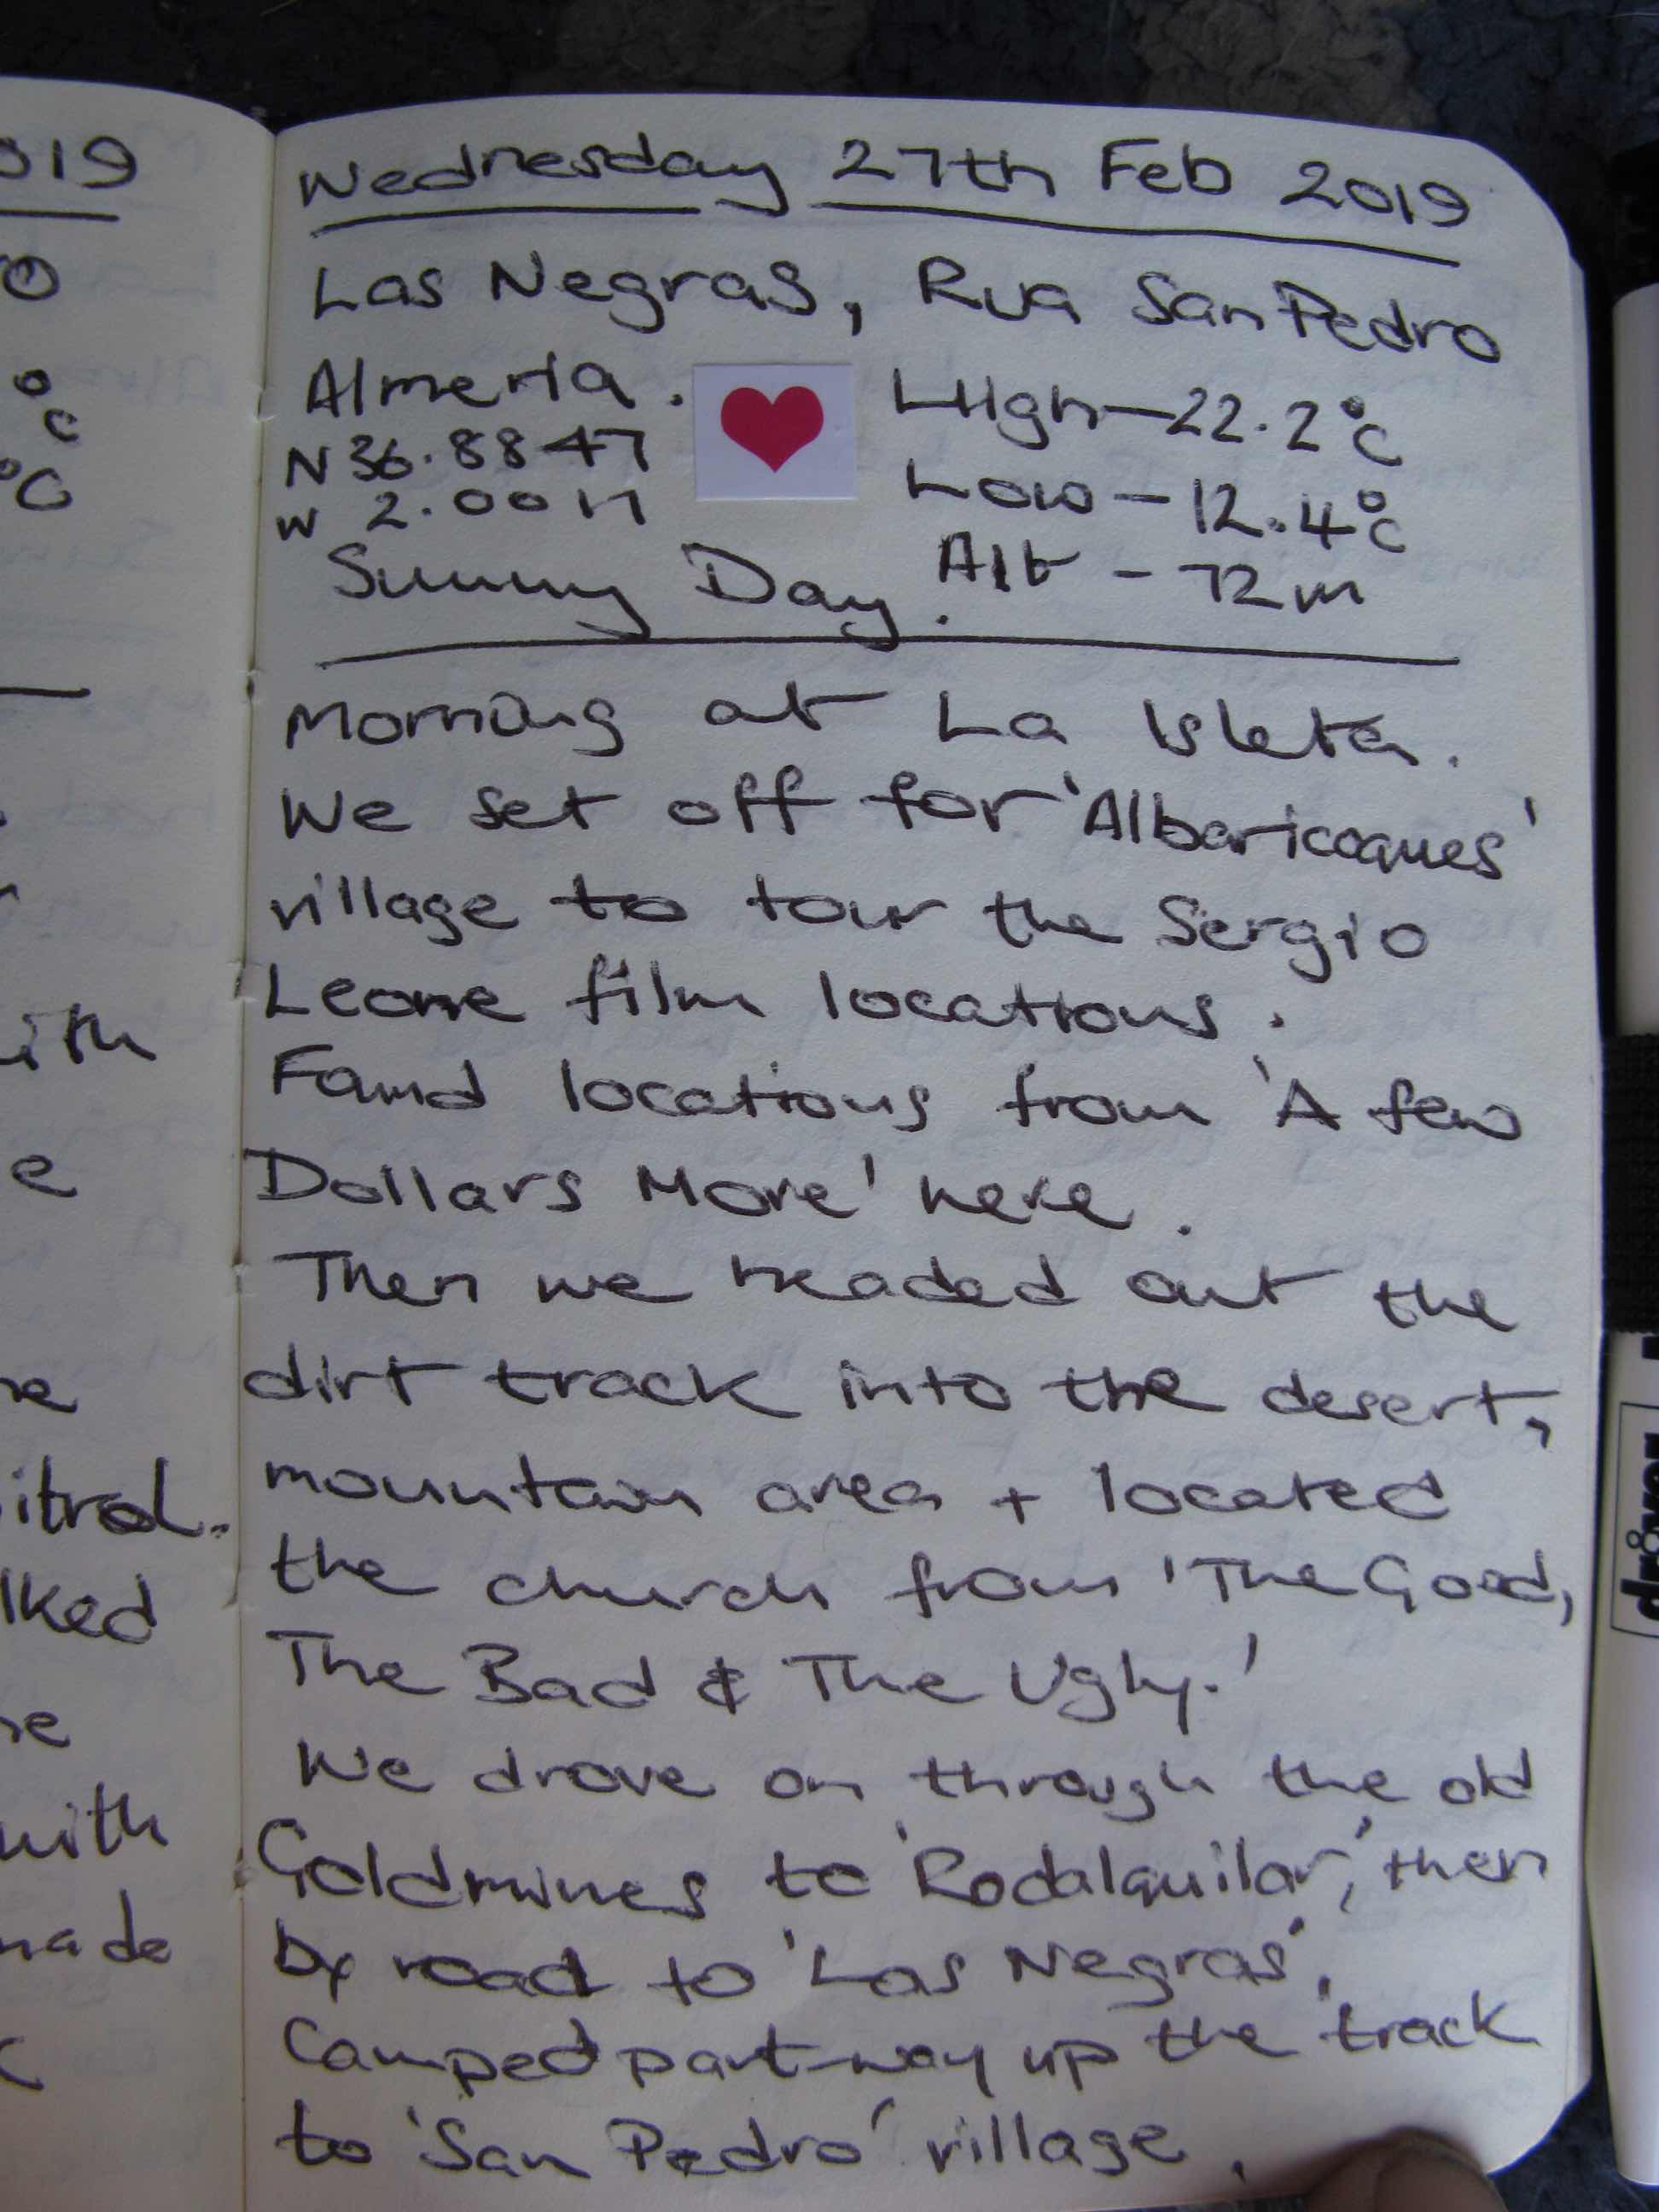 019
Wednesday 27th Feb 2019
Las Negras, Rua San Pedro
Almeria.
N 36.8847
W 2.0017
High - 22.2°C
Low - 12.4°C
Alt - 72m
Sunny Day.
Morning at La Isleta.
We set off for 'Albaricoques'
village to tour the Sergio
Leone film locations.
Found locations from 'A few
Dollars More' here.
Then we headed out the
dirt track into the desert,
mountain area + located
the church from 'The Good,
The Bad & The Ugly.'
We drove on through the old
Goldmines to 'Rodalquilar', then
by road to 'Las Negras'.
Camped part-way up the track
to 'San Pedro' village.
°C
°C
ith
e
itrol.
lked
with
made
driver